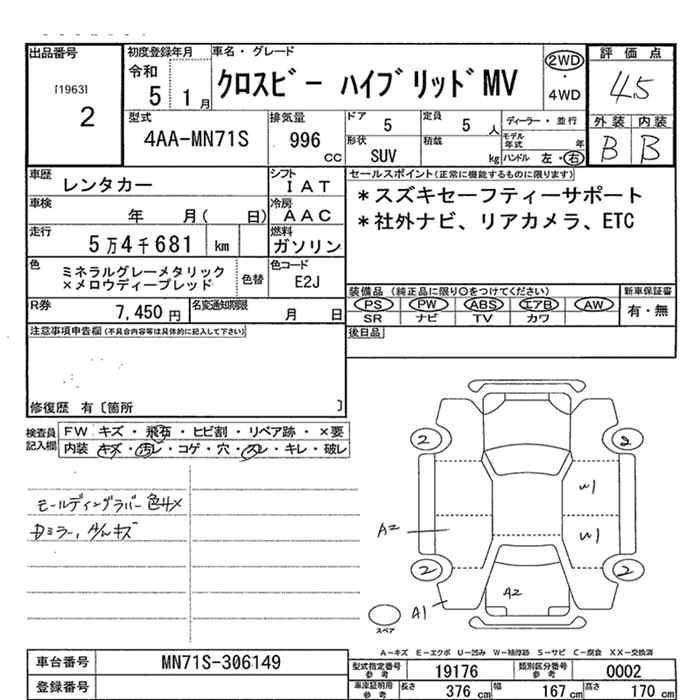 出品番号
[1963]
2
初度登録年月
令和 5 1 月
車名・グレード
クロスビー ハイブリッドMV
2WD
・
4WD
評価点
4.5
外装 内装
B B
型式
4AA-MN71S
排気量
996 cc
ドア
5
定員
5 人
ディーラー・並行
形状
SUV
積載
kg
モデル年式 年
ハンドル 左・右
車歴 レンタカー
シフト IAT
車検 年 月( 日)
冷房 AAC
走行 5万4千681 km
燃料 ガソリン
色
ミネラルグレーメタリック
×メロウディープレッド
色替
色コード
E2J
R券
7,450円
名変通知期限
月 日
セールスポイント(正常に機能するものに限ります)
*スズキセーフティーサポート
*社外ナビ、リアカメラ、ETC
装備品 (純正品に限り○をつけてください)
PS PW ABS エアB AW
SR ナビ TV カワ
新車保証書
有・無
後日品
注意事項申告欄(不具合内容等は具体的に記入して下さい)
修復歴 有〔箇所 〕
検査員
記入欄
FW キズ・飛石・ヒビ割・リペア跡・×要
内装 キズ・汚レ・コゲ・穴・スレ・キレ・破レ
モールディングラバー色サメ
Dミラー、A/Wキズ
2 2
W1
A2 W1
2 2
A2
A1
スペア
A-キズ E-エクボ U-凹み W-補修跡 S-サビ C-腐食 XX-交換済
車台番号 MN71S-306149
登録番号
型式指定番号
参考
19176
類別区分番号
参考
0002
車庫証明用
参考
長さ 376 cm
幅 167 cm
高さ 170 cm